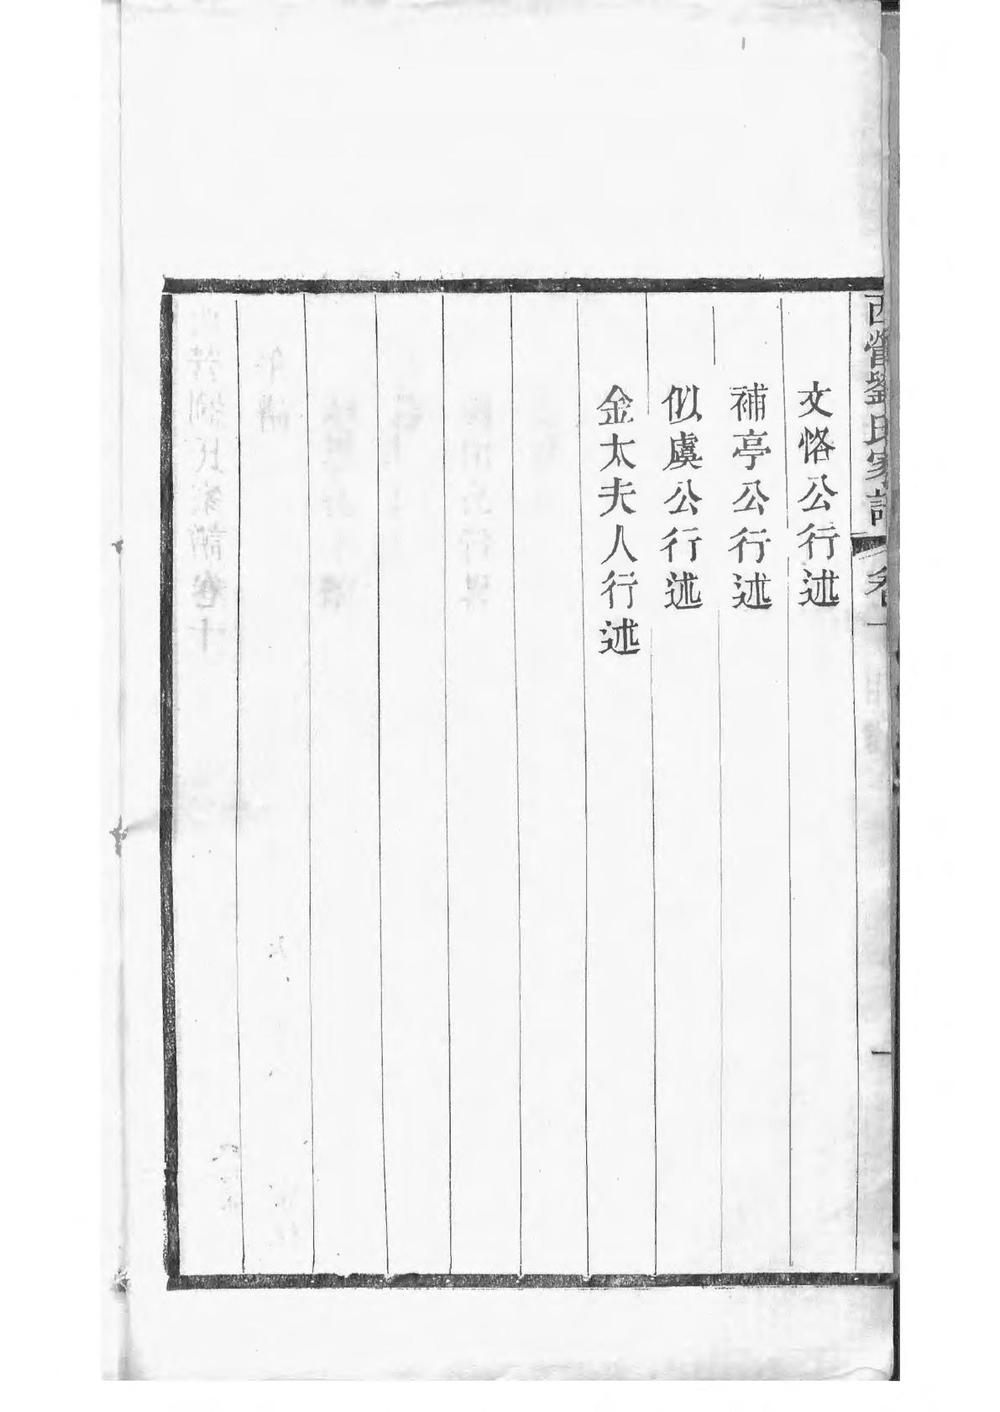 西營劉氏家譜 卷十
一
文恪公行述
補亭公行述
似虞公行述
金太夫人行述